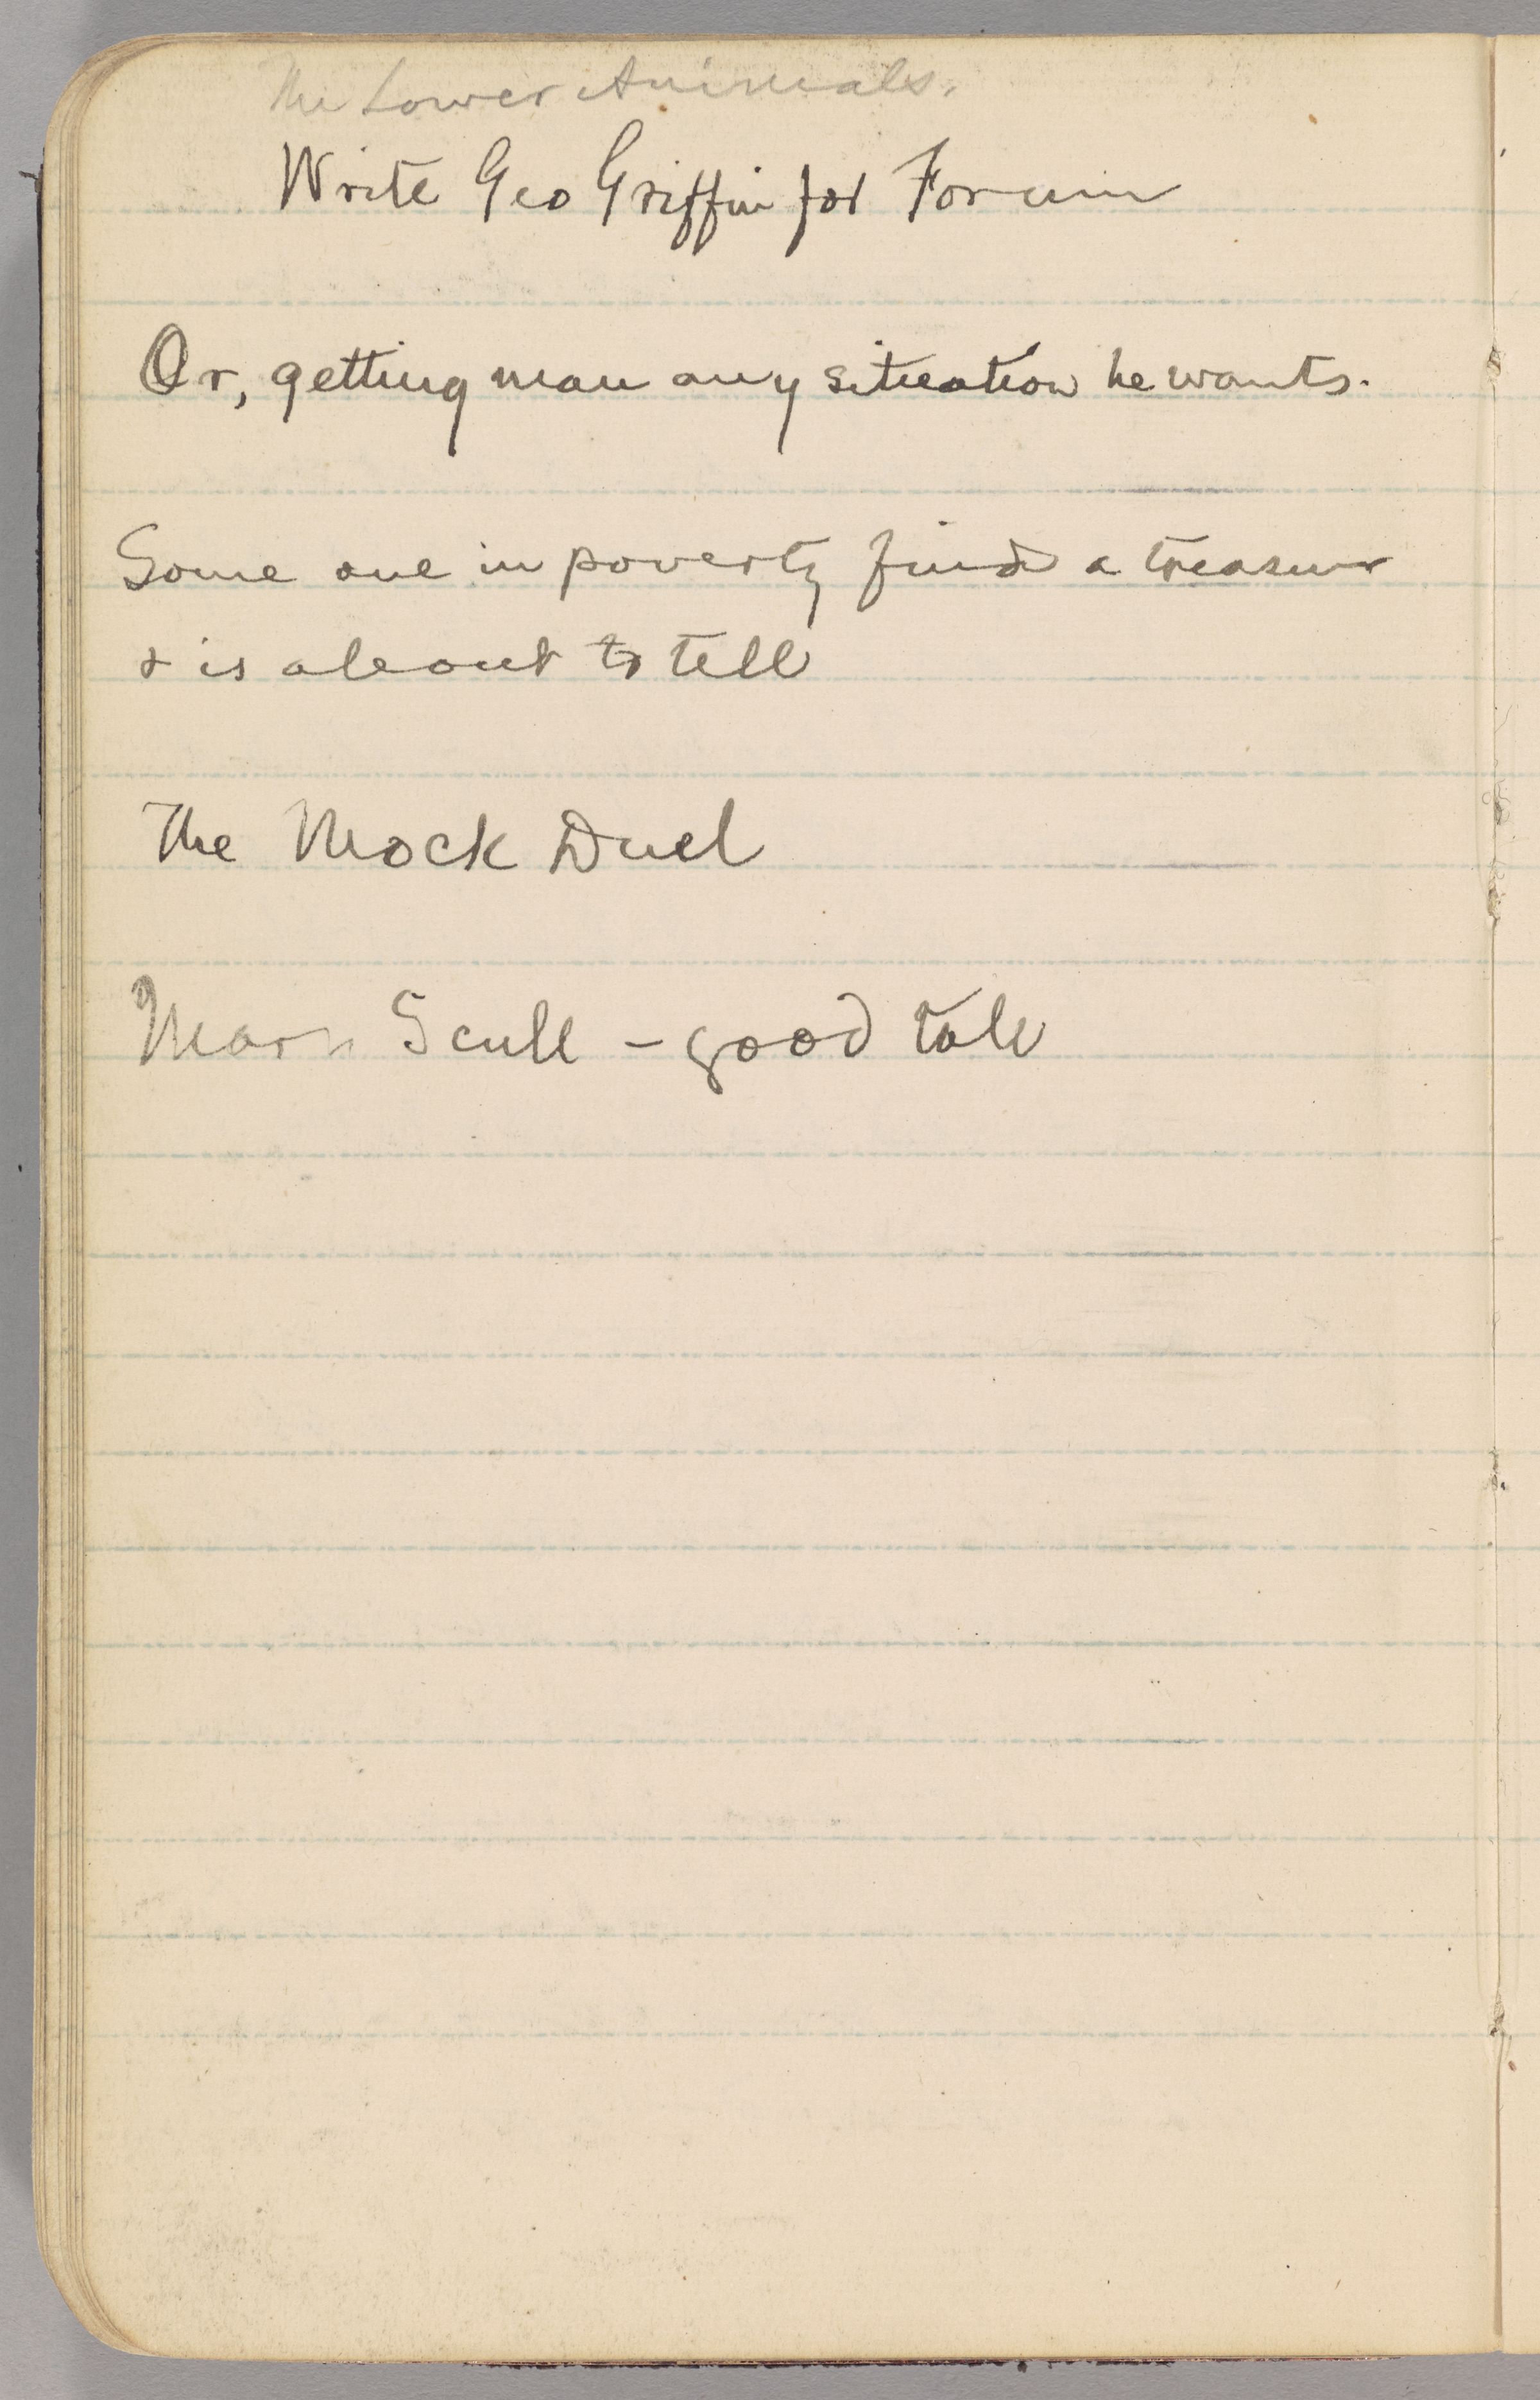 The Lower Animals.
Write Geo Griffin for Forum
Or, getting man any situation he wants.
Some one in poverty finds a treasure
& is about to tell
The Mock Duel
Scull – good tale